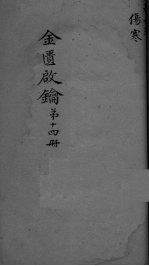 傷寒
金匱啟鑰
第十四冊